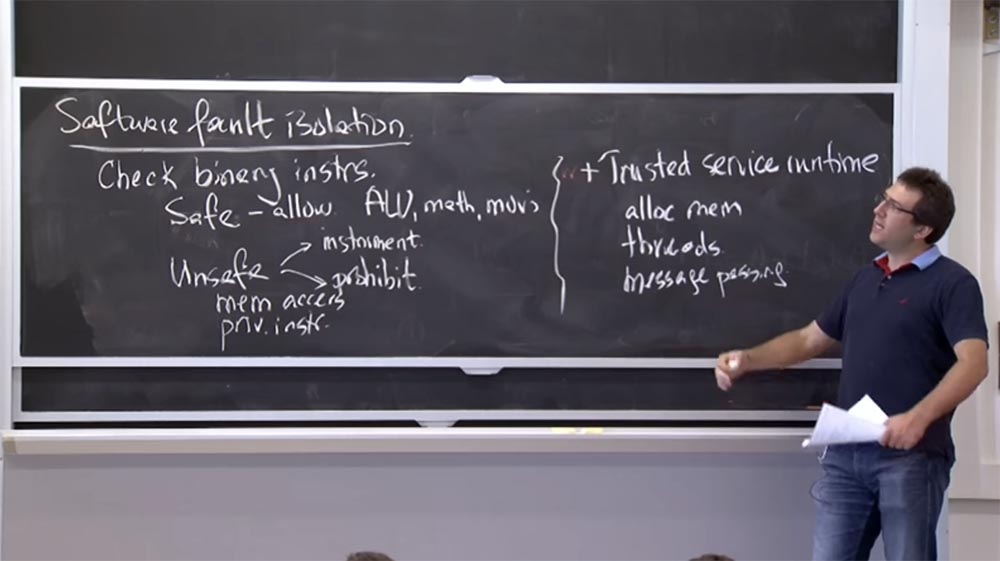 Software fault isolation.
Check binary instrs.
Safe - allow ALU, math, movs
Unsafe
instrument.
prohibit.
mem access
priv. instr.
+ Trusted service runtime
alloc mem
threads.
message passing.